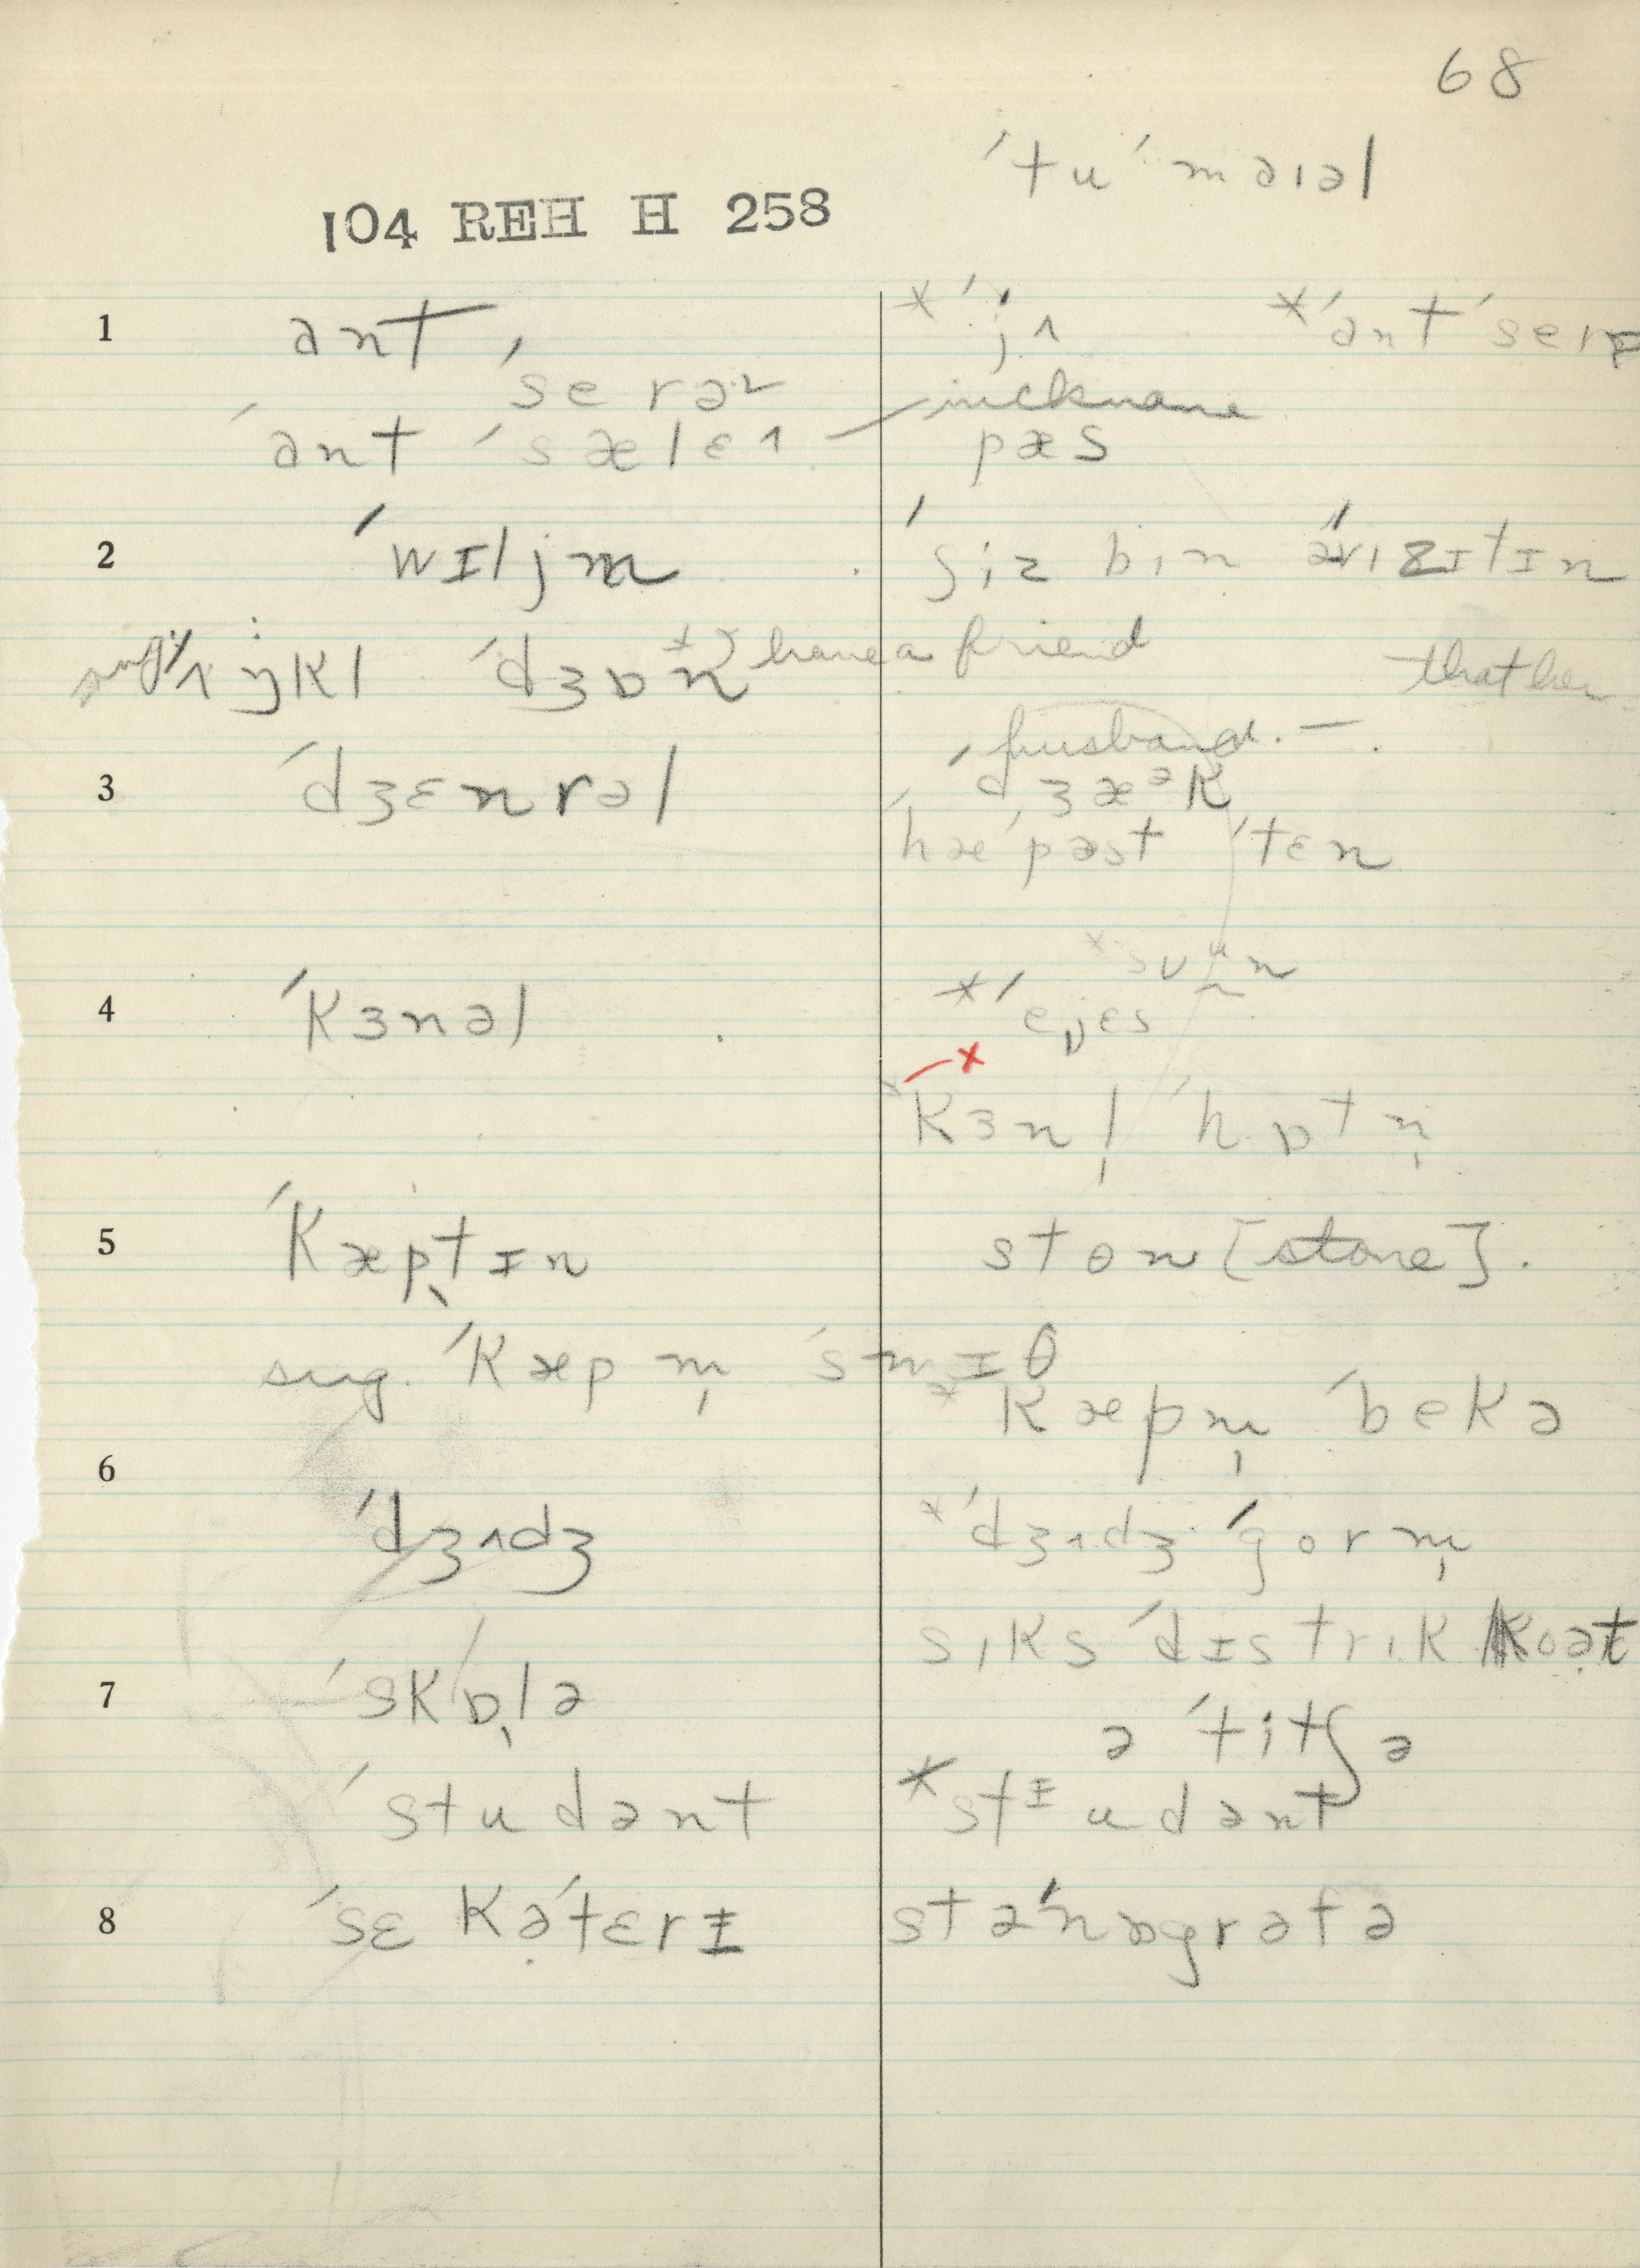 68
ˈtu ˈmaɪəl
104 REH H 258
1 ant, *ˈjʌ *ˈant ˈserə
ˈserə nickname
ˈant ˈsælɛɪ pæs
2 ˈwɪljm ˈʃiz bin ˈvɪzɪtɪn
ˈʌŋkl ˈdʒɒn have a friend that her
husband. — .
3 ˈdʒɛnrəl ˈdʒæᵊk
ˈhæˈpast ˈtɛn
4 ˈkɜnəl *ˈejɛs
ˣˈkɜnl̩ ˈhɒtn̩
5 ˈkæptɪn ston [stone].
sug. ˈkæpm̩ ˈsmɪθ
*ˈkæpm̩ ˈbekə
6 ˈdʒʌdʒ *ˈdʒʌdʒ ˈgorm̩
sɪks ˈdɪstrɪk koət
7 ˈskɒlə ə ˈtitʃə
ˈstudənt *stᶦudənt
8 ˈsɛkəˈtɛrɪ stəˈnɒgrəfə